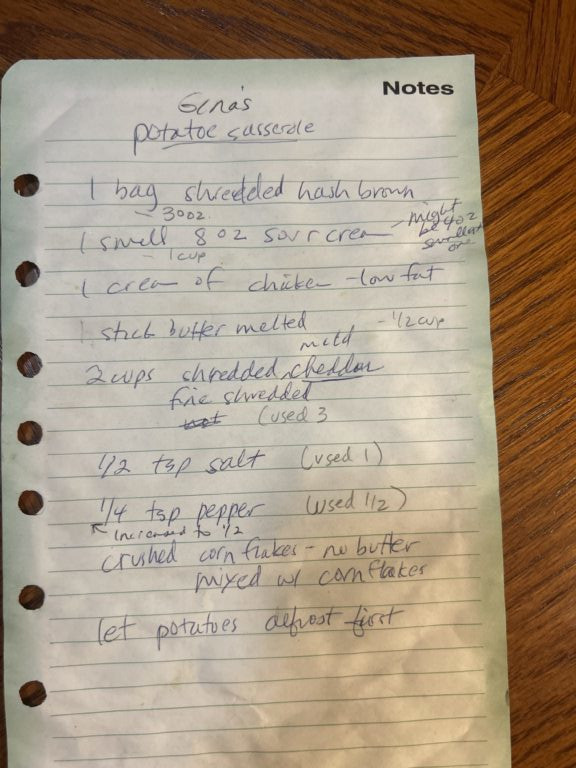 Notes
Gena's
potatoe casserole
1 bag shredded hash brown
~ 30oz.
1 small 8 oz sour cream - might be 4oz smallest one
- 1 cup
1 cream of chicken - low fat
1 stick butter melted - 1/2 cup
mild
2 cups shredded cheddar
fine shredded
not (used 3
1/2 tsp salt (used 1)
1/4 tsp pepper (used 1/2)
increased to 1/2
crushed corn flakes - no butter
mixed w/ cornflakes
let potatoes defrost first